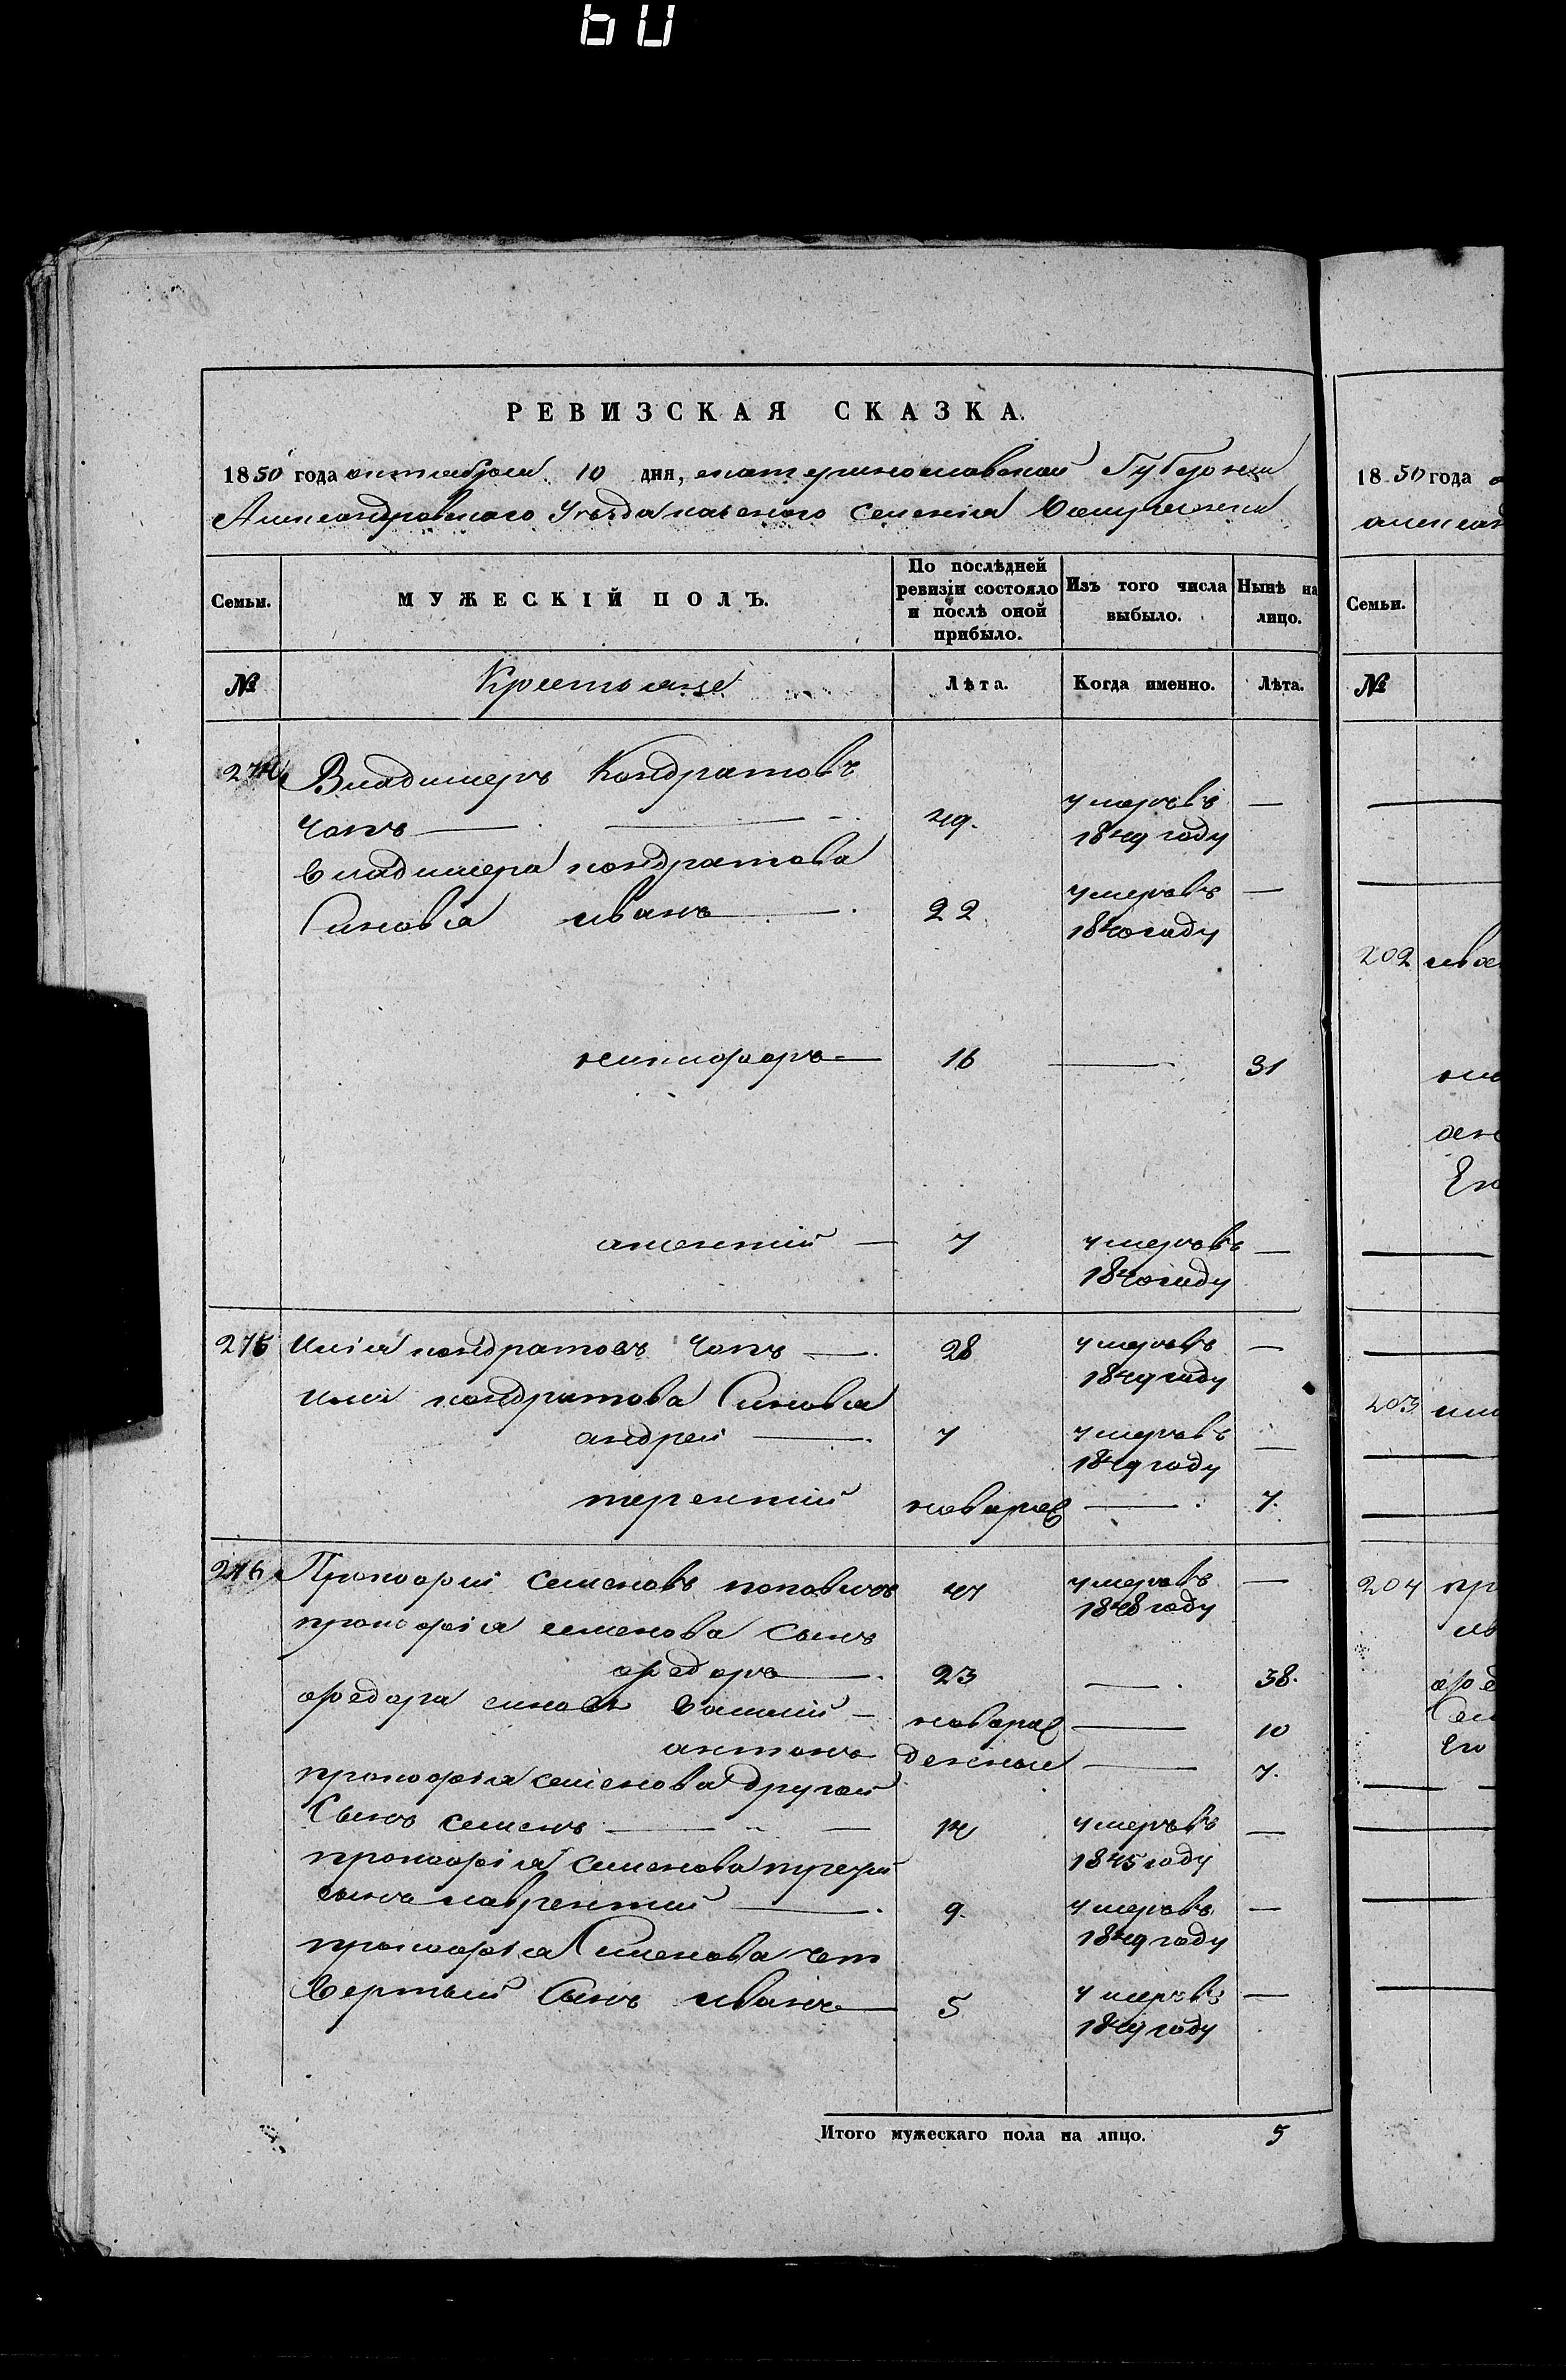 60
РЕВИЗСКАЯ СКАЗКА.
1850 года октября 10 дня, екатеринославской Губернии
Александровского Уѣзда казеного селенія
Семьи.
МУЖЕСКІЙ ПОЛЪ.
По послѣдней ревизіи состояло и послѣ оной прибыло.
Изъ того числа выбыло.
Нынѣ на лицо.
№
Крестьяне
Лѣта.
Когда именно.
Лѣта.
274 Владимеръ Кондратовъ
Чапъ — 49. умеръ въ 1849 году —
владимера кондратова
Синовіа иванъ — 22 умеръ въ 1840 году —
никифоръ — 16 — 31
аксентий — 7 умеръ въ 1840 году —
275 Иліа кондратовъ Чапъ — 28 умеръ въ 1849 году —
илиі кондратова Синовіа
андреи — 7 умеръ въ 1849 году —
терентий новорож — 7.
276 Прокофий семеновъ поповичъ 47 умеръ въ 1848 году —
прокофіа семенова сынъ
федоръ — 23 — 38.
федора синовіа василий — новорож — 10
антонъ денные — 7.
прокофіа семенова другой
Сынъ семенъ — 14 умеръ въ 1845 году —
прокофіа семенова трети
сынъ лаврентий — 9. умеръ въ 1849 году —
прокофіа Семенова чет
вертый Сынъ иванъ — 5 умеръ въ 1849 году —
Итого мужескаго пола на лицо. 5
1850 года
александ
Семьи.
№
202 ива
203 или
204 пр
ив
фед
Его